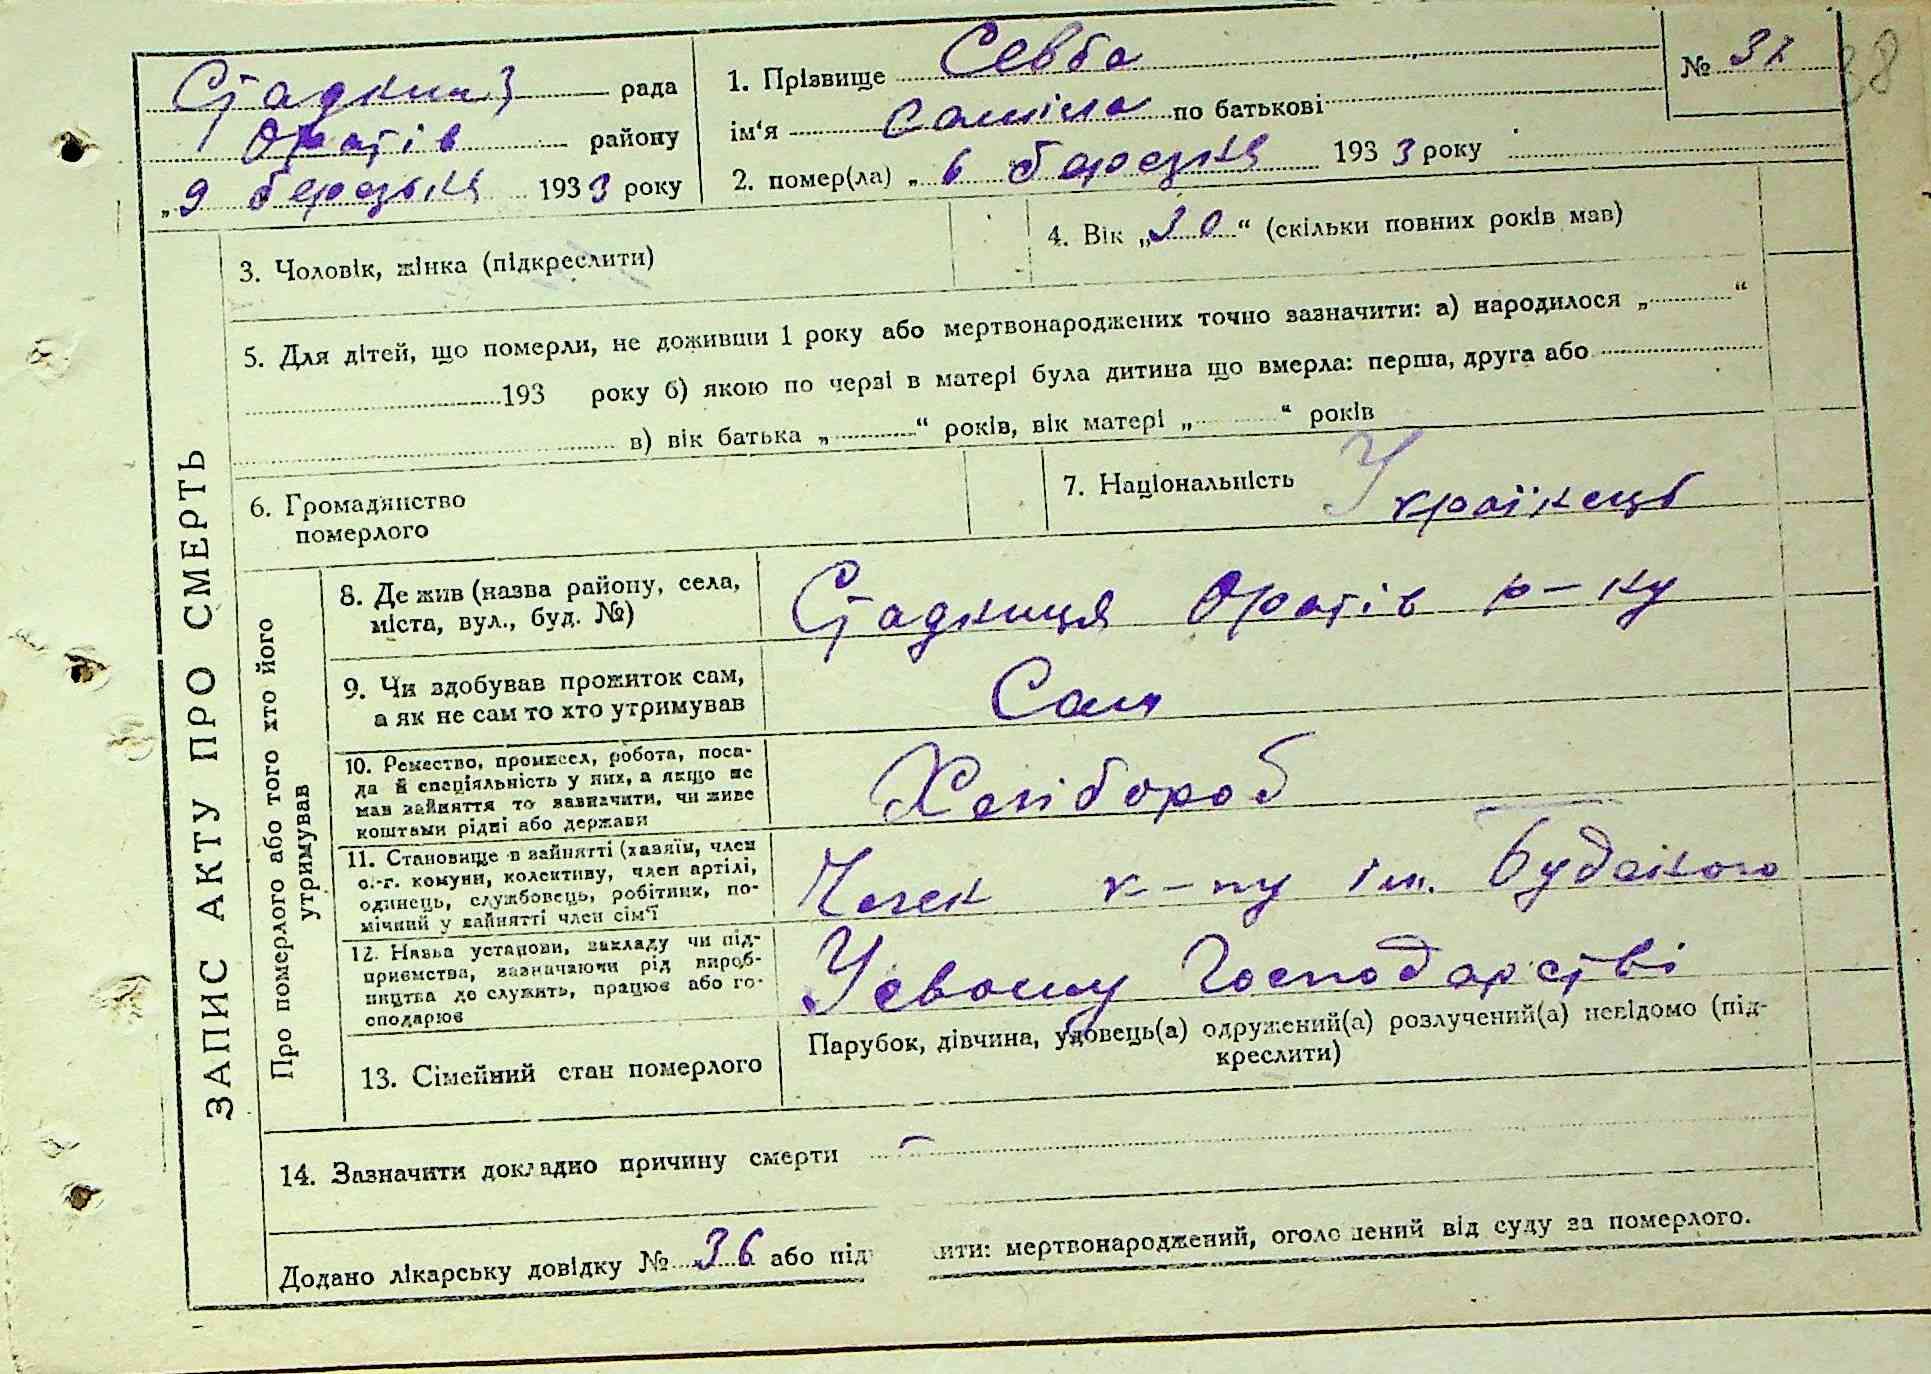 рада
Оратів району
„9 березня 1933 року
1. Прізвище Севба
ім‘я Саміла по батькові
2. помер(ла) „ 6 березня 1933 року
№ 31
38
ЗАПИС АКТУ ПРО СМЕРТЬ
3. Чоловік, жінка (підкреслити)
4. Вік „30“ (скільки повних років мав)
5. Для дітей, що померли, не доживши 1 року або мертвонароджених точно зазначити: а) народилося „ “
193 року б) якою по черзі в матері була дитина що вмерла: перша, друга або
в) вік батька „ “ років, вік матері „ “ років
6. Громадянство
померлого
7. Національність Українець
Про померлого або того хто його
утримував
8. Де жив (назва району, села,
міста, вул., буд. №)
Стадниця Оратів р-ну
9. Чи здобував прожиток сам,
а як не сам то хто утримував
Сам
10. Ремество, промисел, робота, поса-
да й спеціяльність у них, а якщо не
мав зайняття то зазначити, чи живе
коштами рідні або держави
Хлібороб
11. Становище в зайнятті (хазяїн, член
с.-г. комуни, колективу, член артілі,
одинець, службовець, робітник, по-
мічний у зайнятті член сім‘ї
Член к-пу ім. Будьоного
12. Назва установи, закладу чи під-
приємства, зазначаючи рід вироб-
ництва де служить, працює або го-
сподарює
Усвому Господарстві
13. Сімейний стан померлого
Парубок, дівчина, удовець(а) одружений(а) розлучений(а) невідомо (під-
креслити)
14. Зазначити докладно причину смерти –
Додано лікарську довідку № 36 або під ити: мертвонароджений, оголошений від суду за померлого.